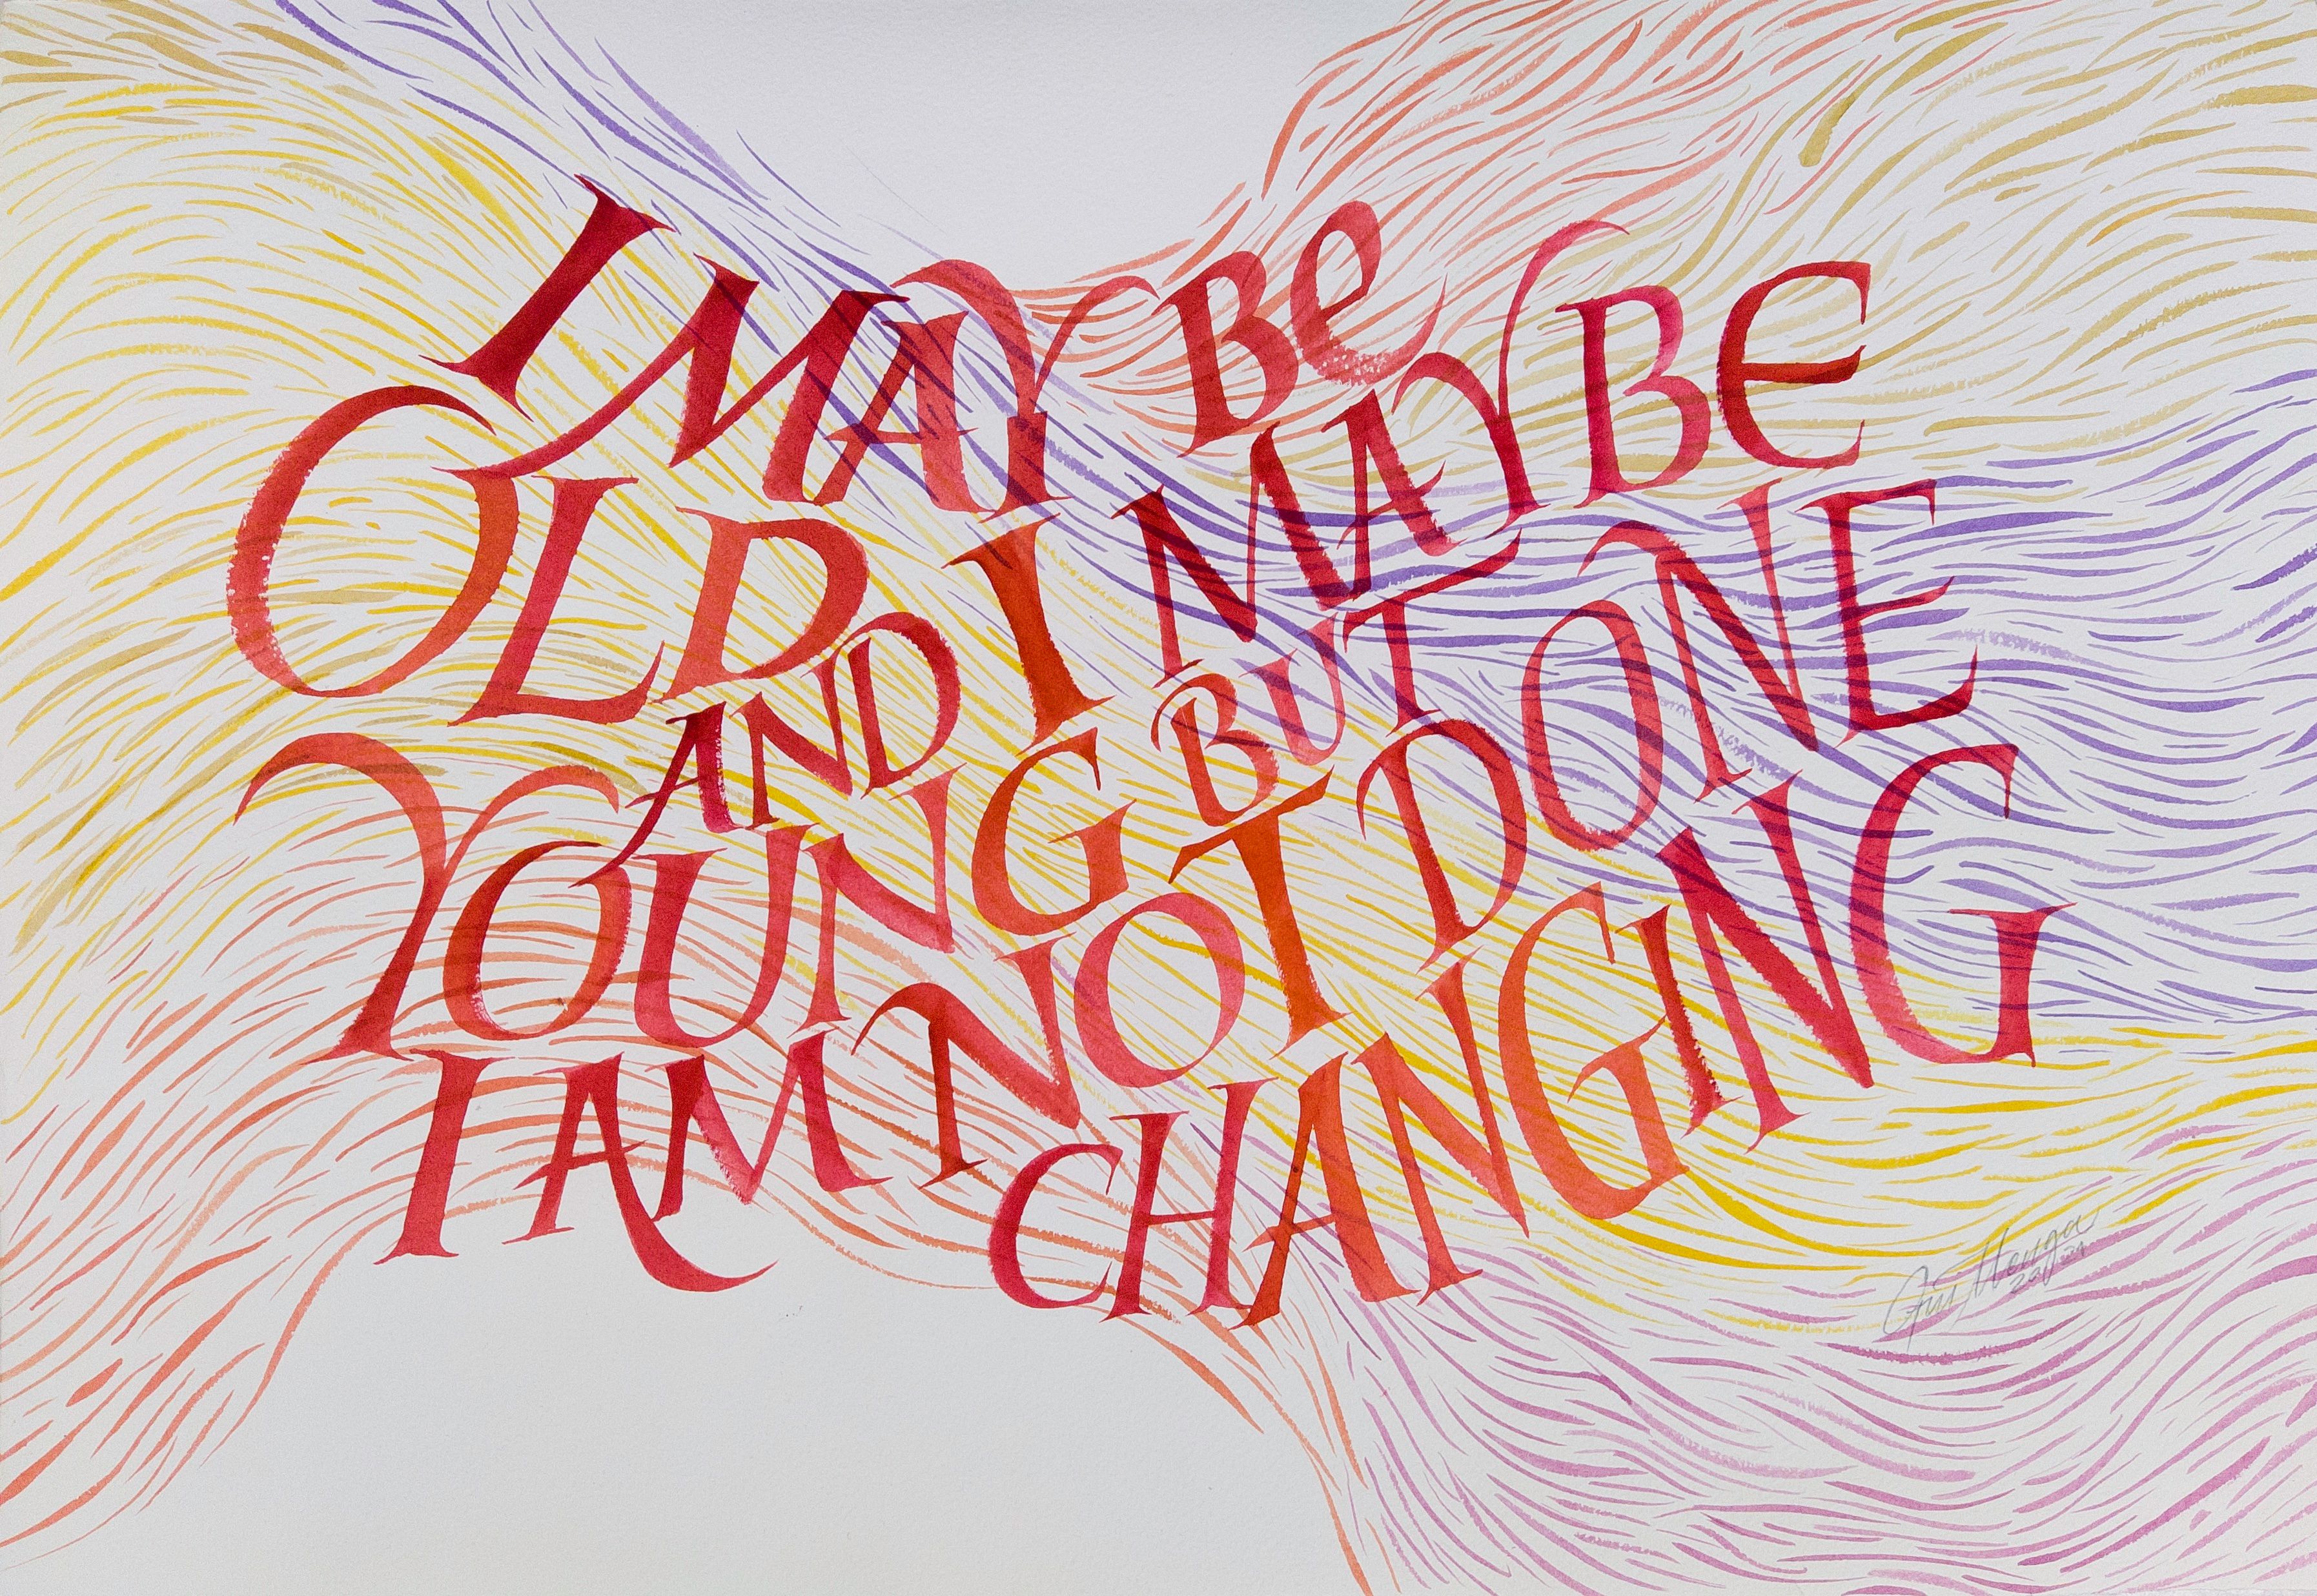 I MAY BE
OLD AND I MAY BE
YOUNG BUT
I AM NOT DONE
CHANGING